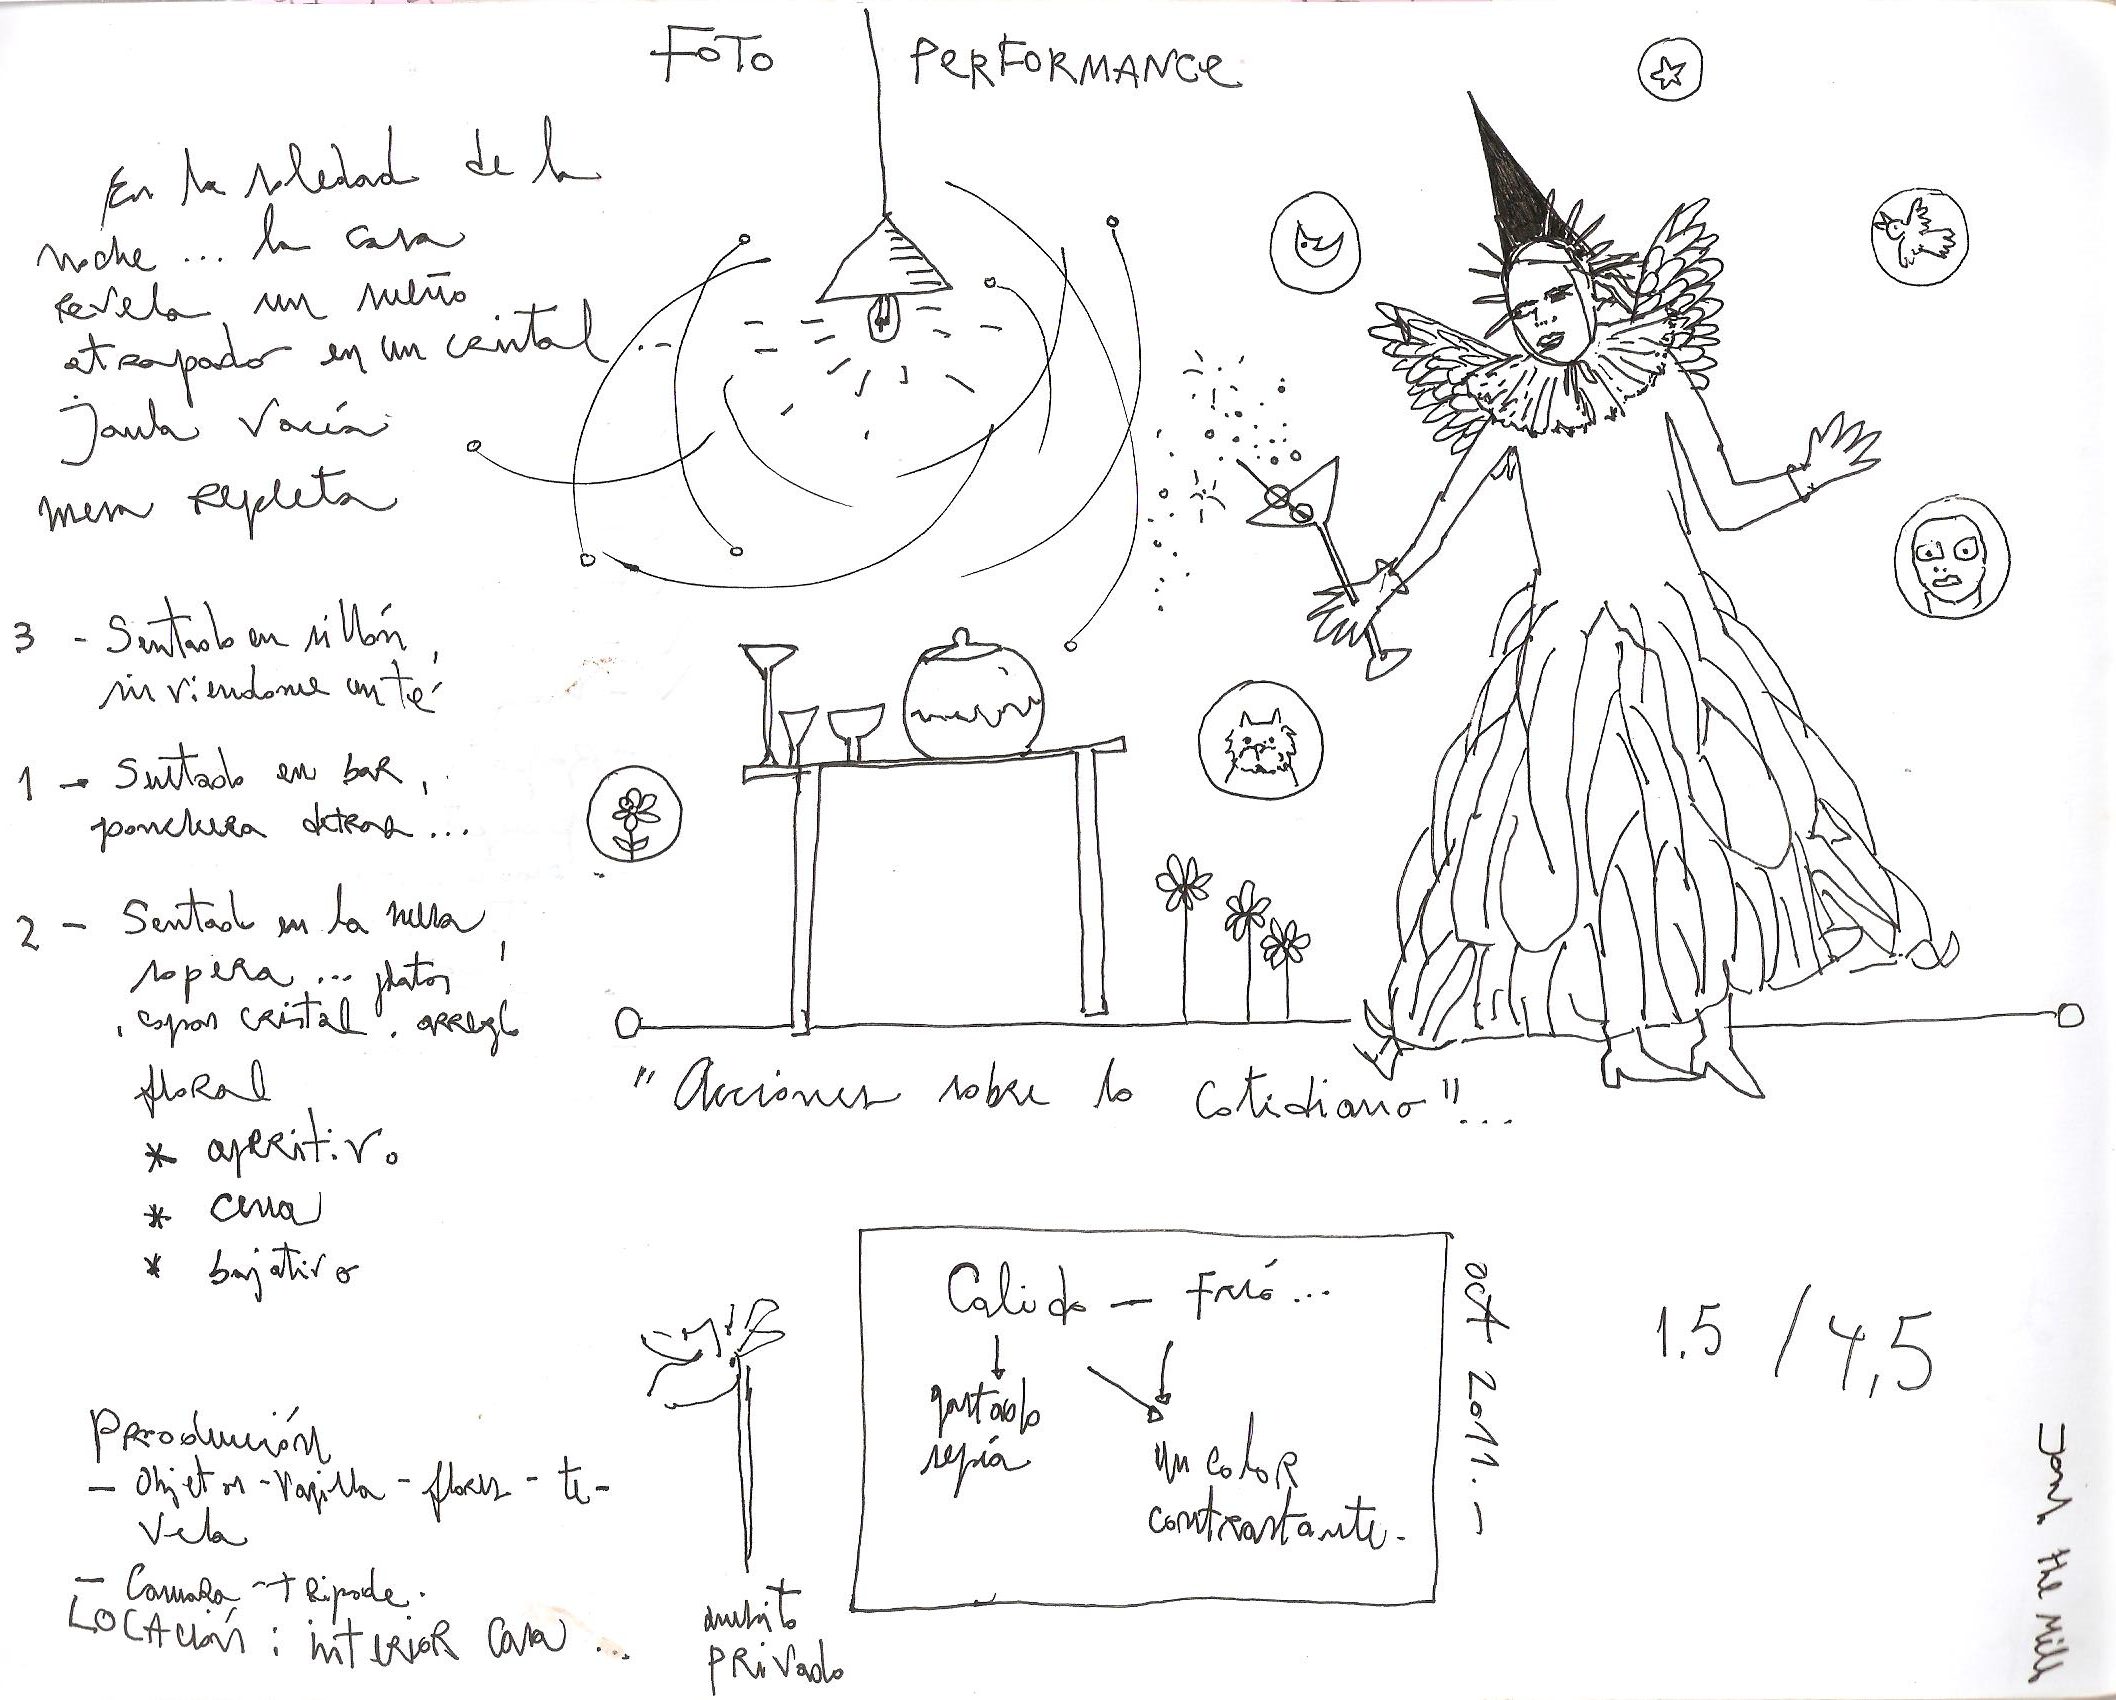 FOTO PERFORMANCE
En la soledad de la
noche ... la casa
revela un sueño
atrapado en un cristal ...
Jaula vacía
mesa repleta
3 - Sentado en sillón,
sirviendome un té
1 - Sentado en bar,
ponchera detras ...
2 - Sentado en la mesa,
sopera ... platos,
, copas cristal, arreglo
floral
* aperitivo
* cena
* bajativo
"Acciones sobre lo cotidiano"...
Producción
- Objetos - Vajilla - flores - te -
vela
- Camara - tripode.
LOCACIÓN : interior casa ...
ambito
privado
Calido - Frió ...
gastado
sepia
un color
contrastante.
oct 2011.-
1.5 / 4,5